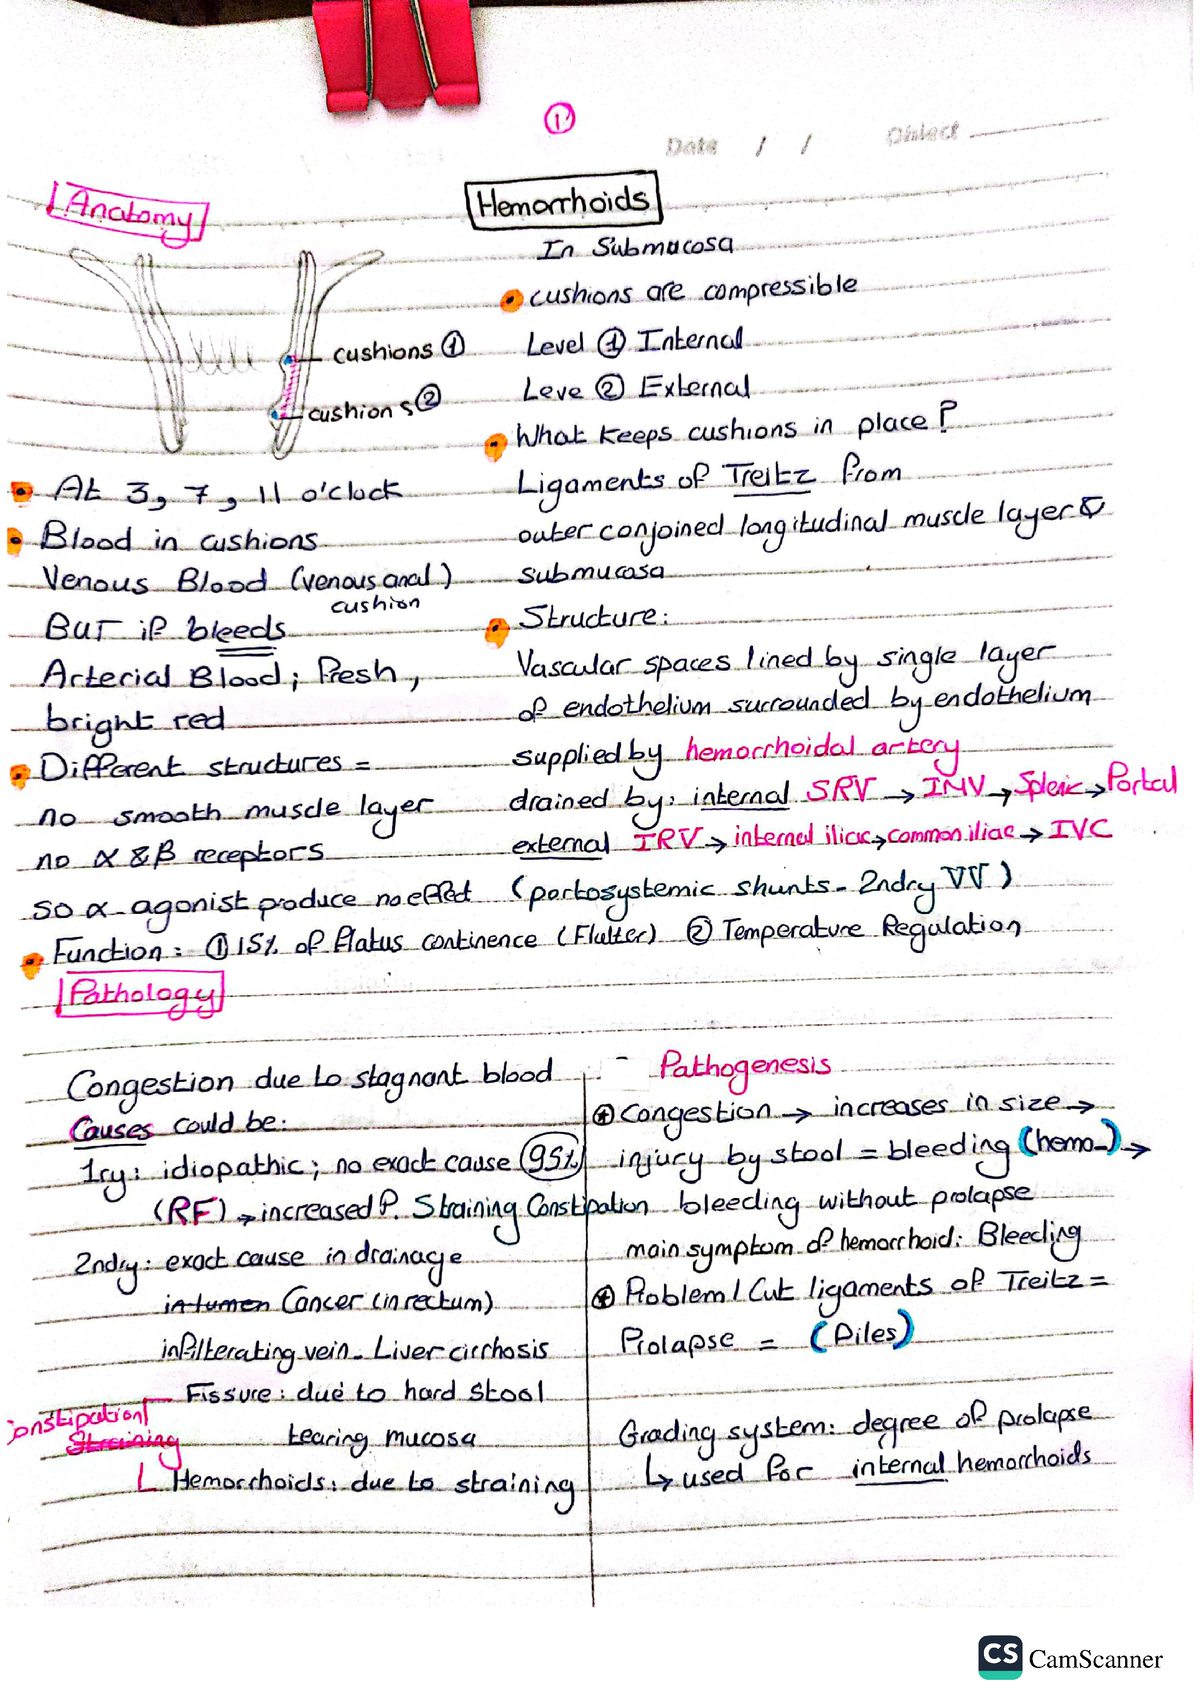 1
Date / /
Object
Anatomy
Hemorrhoids
cushions ①
cushions ②
At 3, 7, 11 o'clock
Blood in cushions
Venous Blood (venous anal
cushion)
BUT if bleeds
Arterial Blood; fresh,
bright red
Different structures =
no smooth muscle layer
no α & β receptors
so α-agonist produce no effect
In Submucosa
cushions are compressible
Level ① Internal
Leve ② External
What keeps cushions in place?
Ligaments of Treitz from
outer conjoined longitudinal muscle layer
submucosa
Structure:
Vascular spaces lined by single layer
of endothelium surrounded by endothelium
supplied by hemorrhoidal artery
drained by: internal SRV → IMV → Splenic → Portal
external IRV → internal iliac → common iliac → IVC
(portosystemic shunts - 2ndry VV)
Function: ① 15% of flatus continence (Flutter) ② Temperature Regulation
Pathology
Congestion due to stagnant blood
Causes could be:
1ry: idiopathic; no exact cause 95%
(RF) → increased P. Straining Constipation
2ndry: exact cause in drainage
in lumen Cancer (in rectum)
infilterating vein - Liver cirrhosis
Fissure: due to hard stool
Constipation
Straining
tearing mucosa
Hemorrhoids: due to straining
Pathogenesis
Congestion → increases in size →
injury by stool = bleeding (hemo-) →
bleeding without prolapse
main symptom of hemorrhoid: Bleeding
Problem / Cut ligaments of Treitz =
Prolapse = (Piles)
Grading system: degree of prolapse
↳ used for internal hemorrhoids
CS CamScanner